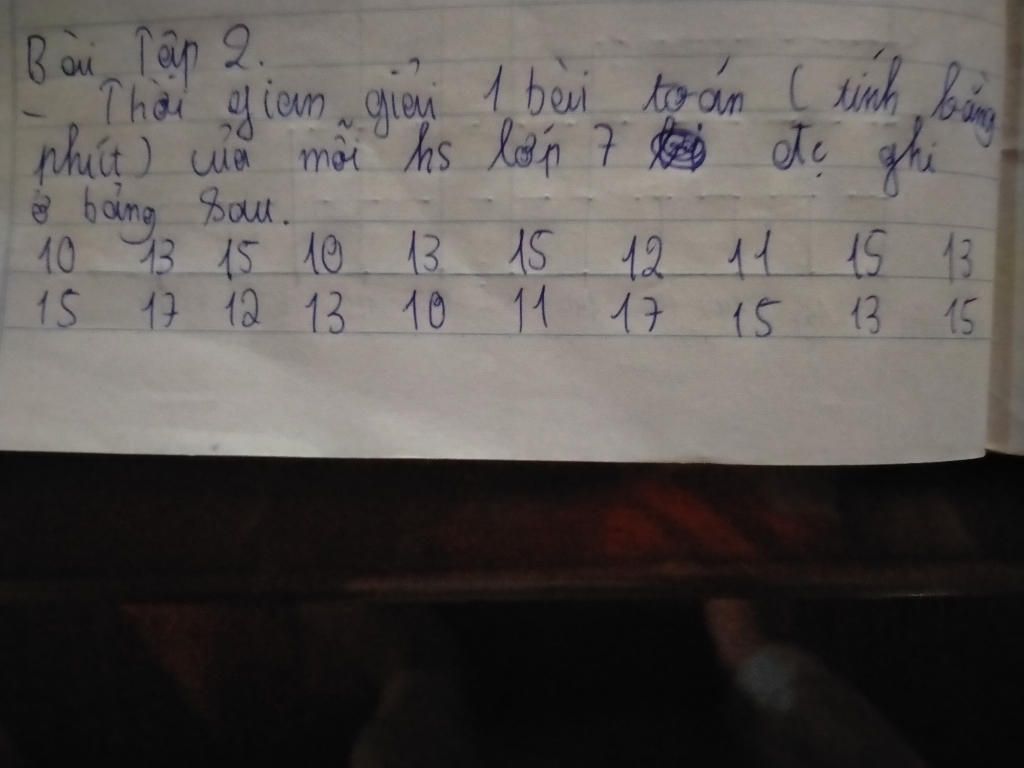 Bài Tập 2.
- Thời gian giải 1 bài toán ( tính bằng
phút) của mỗi hs lớp 7 đc ghi
ở bảng sau.
10 13 15 10 13 15 12 11 15 13
15 17 12 13 10 11 17 15 13 15